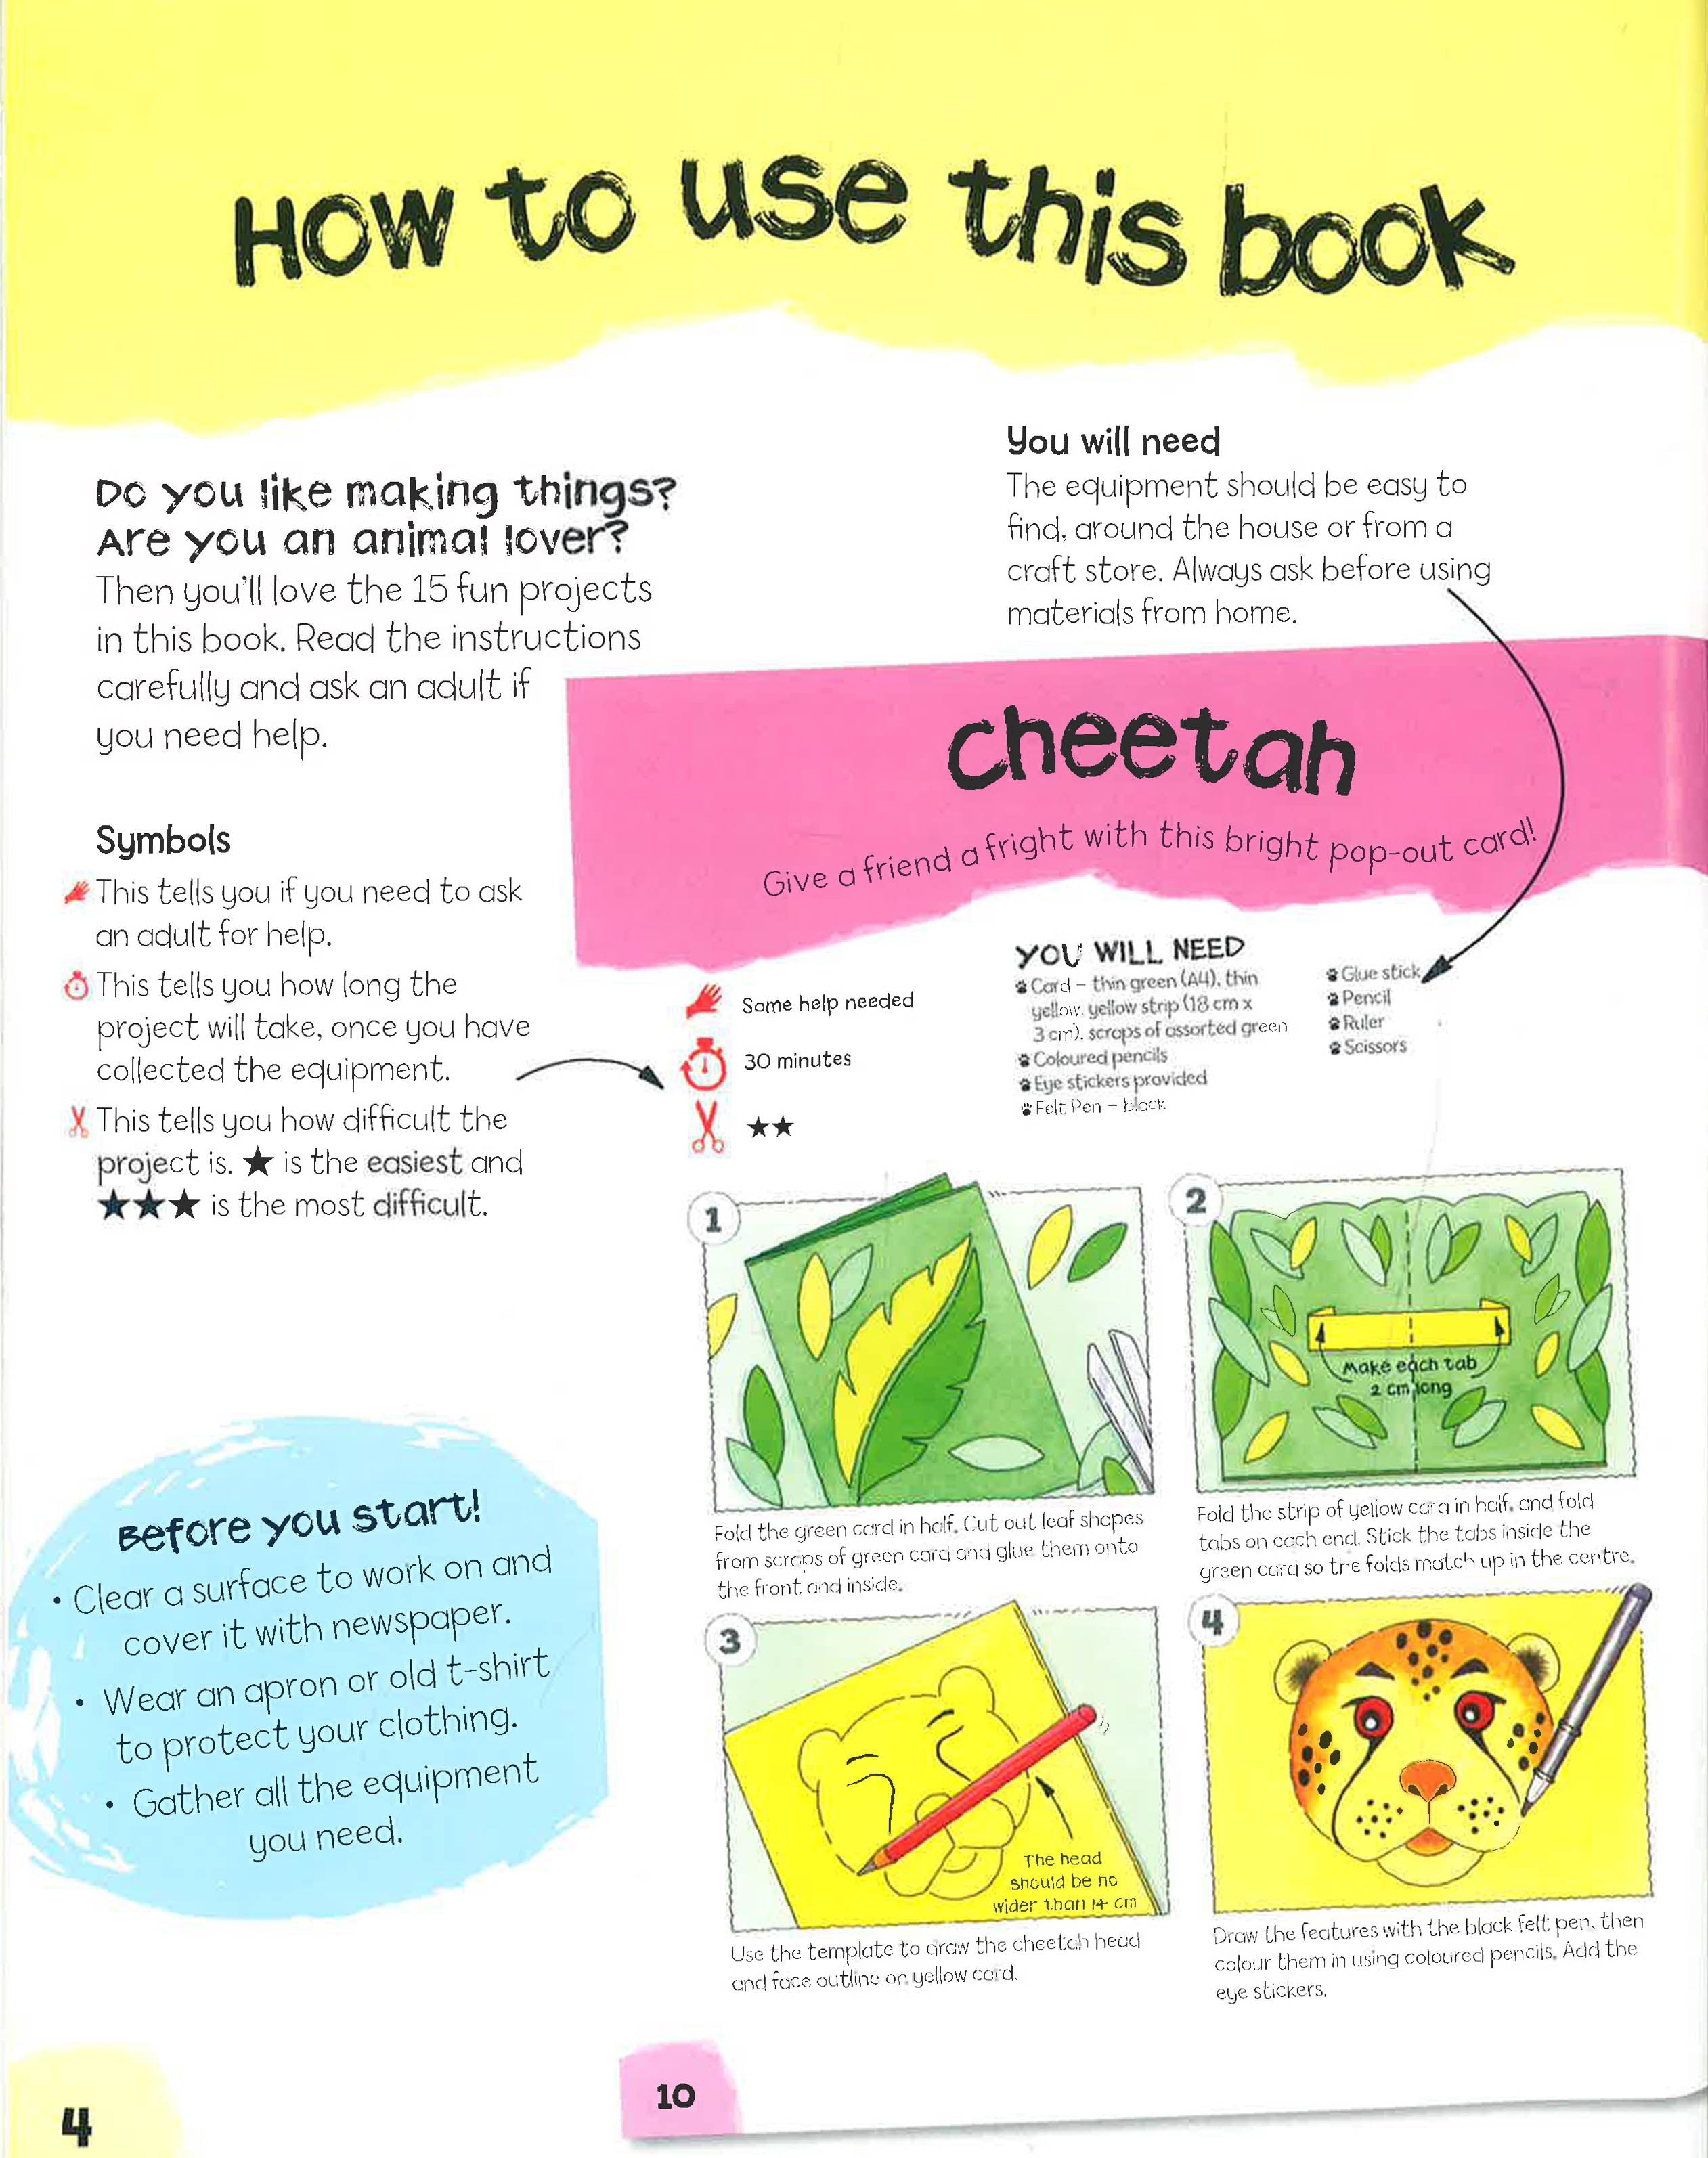 How to use this book
Do you like making things?
Are you an animal lover?
Then you'll love the 15 fun projects
in this book. Read the instructions
carefully and ask an adult if
you need help.
Symbols
This tells you if you need to ask
an adult for help.
This tells you how long the
project will take, once you have
collected the equipment.
This tells you how difficult the
project is. ★ is the easiest and
★★★ is the most difficult.
Before you start!
• Clear a surface to work on and
cover it with newspaper.
• Wear an apron or old t-shirt
to protect your clothing.
• Gather all the equipment
you need.
4
You will need
The equipment should be easy to
find, around the house or from a
craft store. Always ask before using
materials from home.
cheetah
Give a friend a fright with this bright pop-out card!
Some help needed
30 minutes
★★
YOU WILL NEED
Card – thin green (A4), thin
yellow, yellow strip (18 cm x
3 cm), scraps of assorted green
Coloured pencils
Eye stickers provided
Felt Pen – black
Glue stick
Pencil
Ruler
Scissors
1
Fold the green card in half. Cut out leaf shapes
from scraps of green card and glue them onto
the front and inside.
2
Make each tab
2 cm long
Fold the strip of yellow card in half, and fold
tabs on each end. Stick the tabs inside the
green card so the folds match up in the centre.
3
The head
should be no
wider than 14 cm
Use the template to draw the cheetah head
and face outline on yellow card.
4
Draw the features with the black felt pen, then
colour them in using coloured pencils. Add the
eye stickers.
10